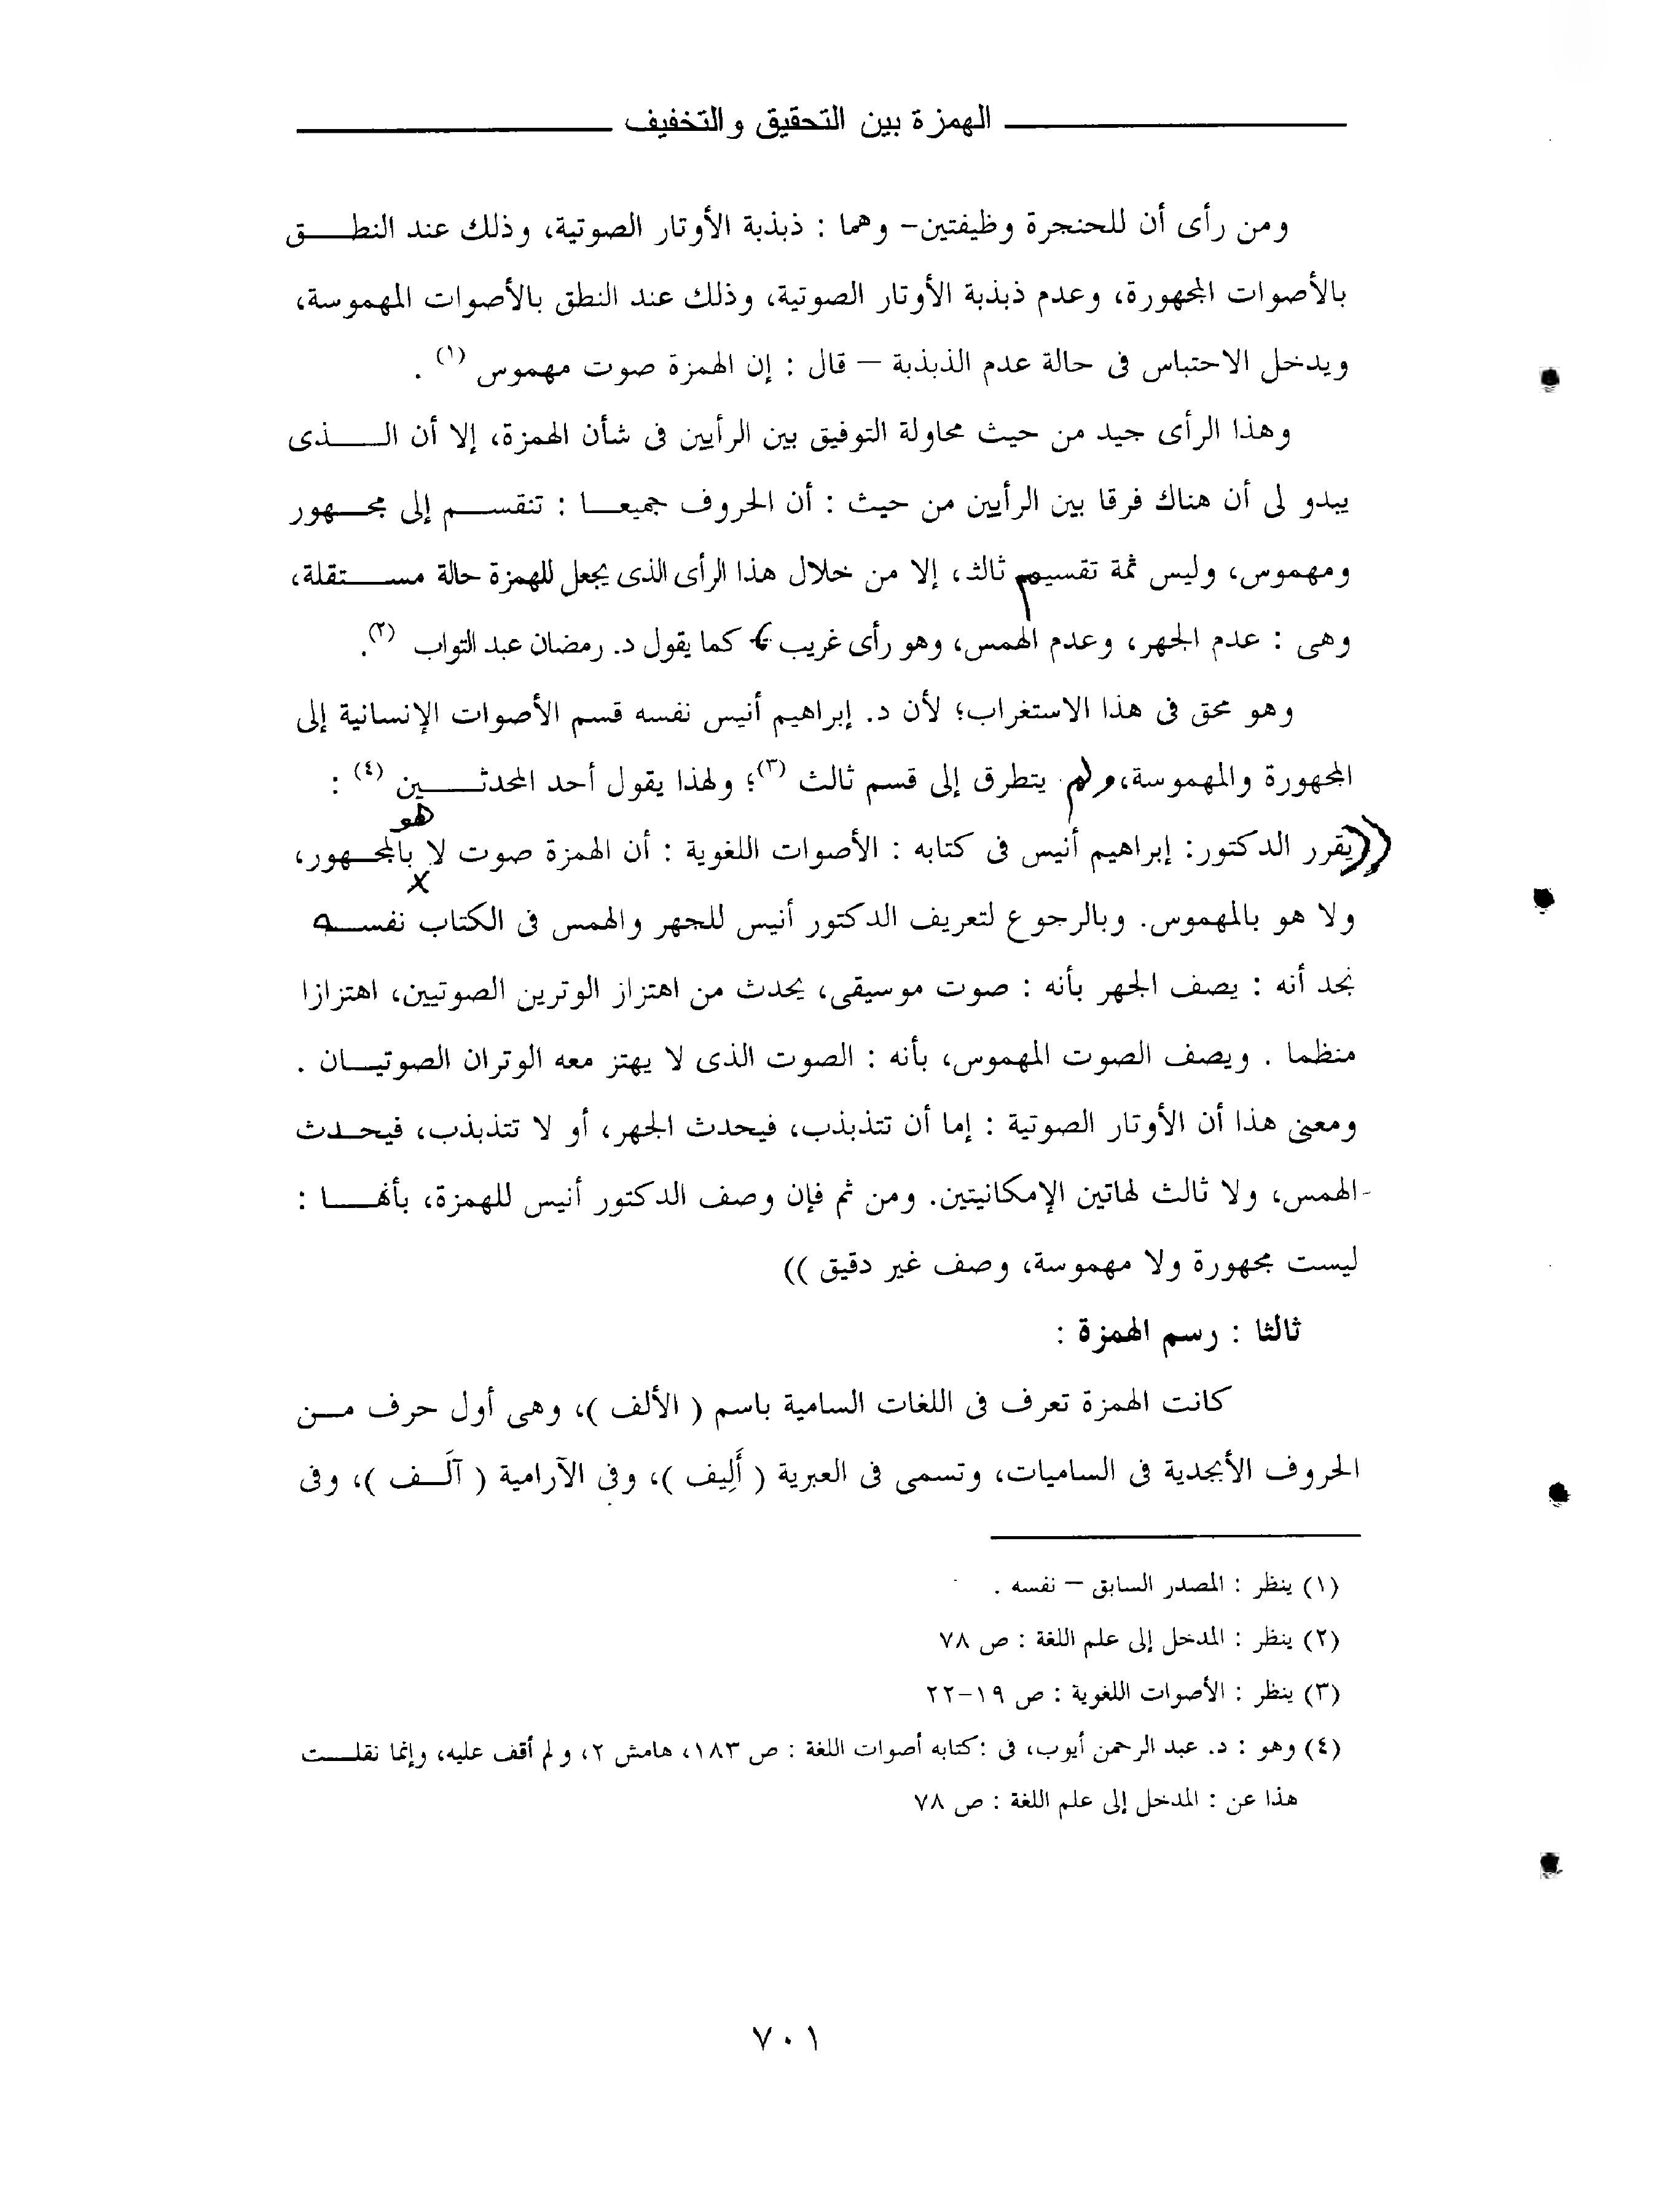 الهمزة بين التحقيق والتخفيف
ومن رأى أن للحنجرة وظيفتين- وهما : ذبذبة الأوتار الصوتية، وذلك عند النطق
بالأصوات المجهورة، وعدم ذبذبة الأوتار الصوتية، وذلك عند النطق بالأصوات المهموسة،
ويدخل الاحتباس فى حالة عدم الذبذبة – قال : إن الهمزة صوت مهموس (١) .
وهذا الرأى جيد من حيث محاولة التوفيق بين الرأيين فى شأن الهمزة، إلا أن الذى
يبدو لى أن هناك فرقا بين الرأيين من حيث : أن الحروف جميعا : تنقسم إلى مجهور
ومهموس، وليس ثمة تقسيم ثالث، إلا من خلال هذا الرأى الذى يجعل للهمزة حالة مستقلة،
وهى : عدم الجهر، وعدم الهمس، وهو رأى غريب كما يقول د. رمضان عبد التواب (٢).
وهو محق فى هذا الاستغراب؛ لأن د. إبراهيم أنيس نفسه قسم الأصوات الإنسانية إلى
المجهورة والمهموسة، ولم يتطرق إلى قسم ثالث (٣)؛ ولهذا يقول أحد المحدثين (٤) :
هو
((يقرر الدكتور: إبراهيم أنيس فى كتابه : الأصوات اللغوية : أن الهمزة صوت لا بالمجهور،
ولا هو بالمهموس. وبالرجوع لتعريف الدكتور أنيس للجهر والهمس فى الكتاب نفسه
نجد أنه : يصف الجهر بأنه : صوت موسيقى، يحدث من اهتزاز الوترين الصوتيين، اهتزازا
منظما . ويصف الصوت المهموس، بأنه : الصوت الذى لا يهتز معه الوتران الصوتيان .
ومعنى هذا أن الأوتار الصوتية : إما أن تتذبذب، فيحدث الجهر، أو لا تتذبذب، فيحدث
الهمس، ولا ثالث لهاتين الإمكانيتين. ومن ثم فإن وصف الدكتور أنيس للهمزة، بأنها :
ليست مجهورة ولا مهموسة، وصف غير دقيق ))
ثالثا : رسم الهمزة :
كانت الهمزة تعرف فى اللغات السامية باسم ( الألف )، وهى أول حرف من
الحروف الأبجدية فى الساميات، وتسمى فى العبرية ( أَلِيف )، وفى الآرامية ( آلَف )، وفى
(١) ينظر : المصدر السابق – نفسه .
(٢) ينظر : المدخل إلى علم اللغة : ص ٧٨
(٣) ينظر : الأصوات اللغوية : ص ١٩-٢٢
(٤) وهو : د. عبد الرحمن أيوب، فى :كتابه أصوات اللغة : ص ١٨٣، هامش ٢، ولم أقف عليه، وإنما نقلت
هذا عن : المدخل إلى علم اللغة : ص ٧٨
٧٠١